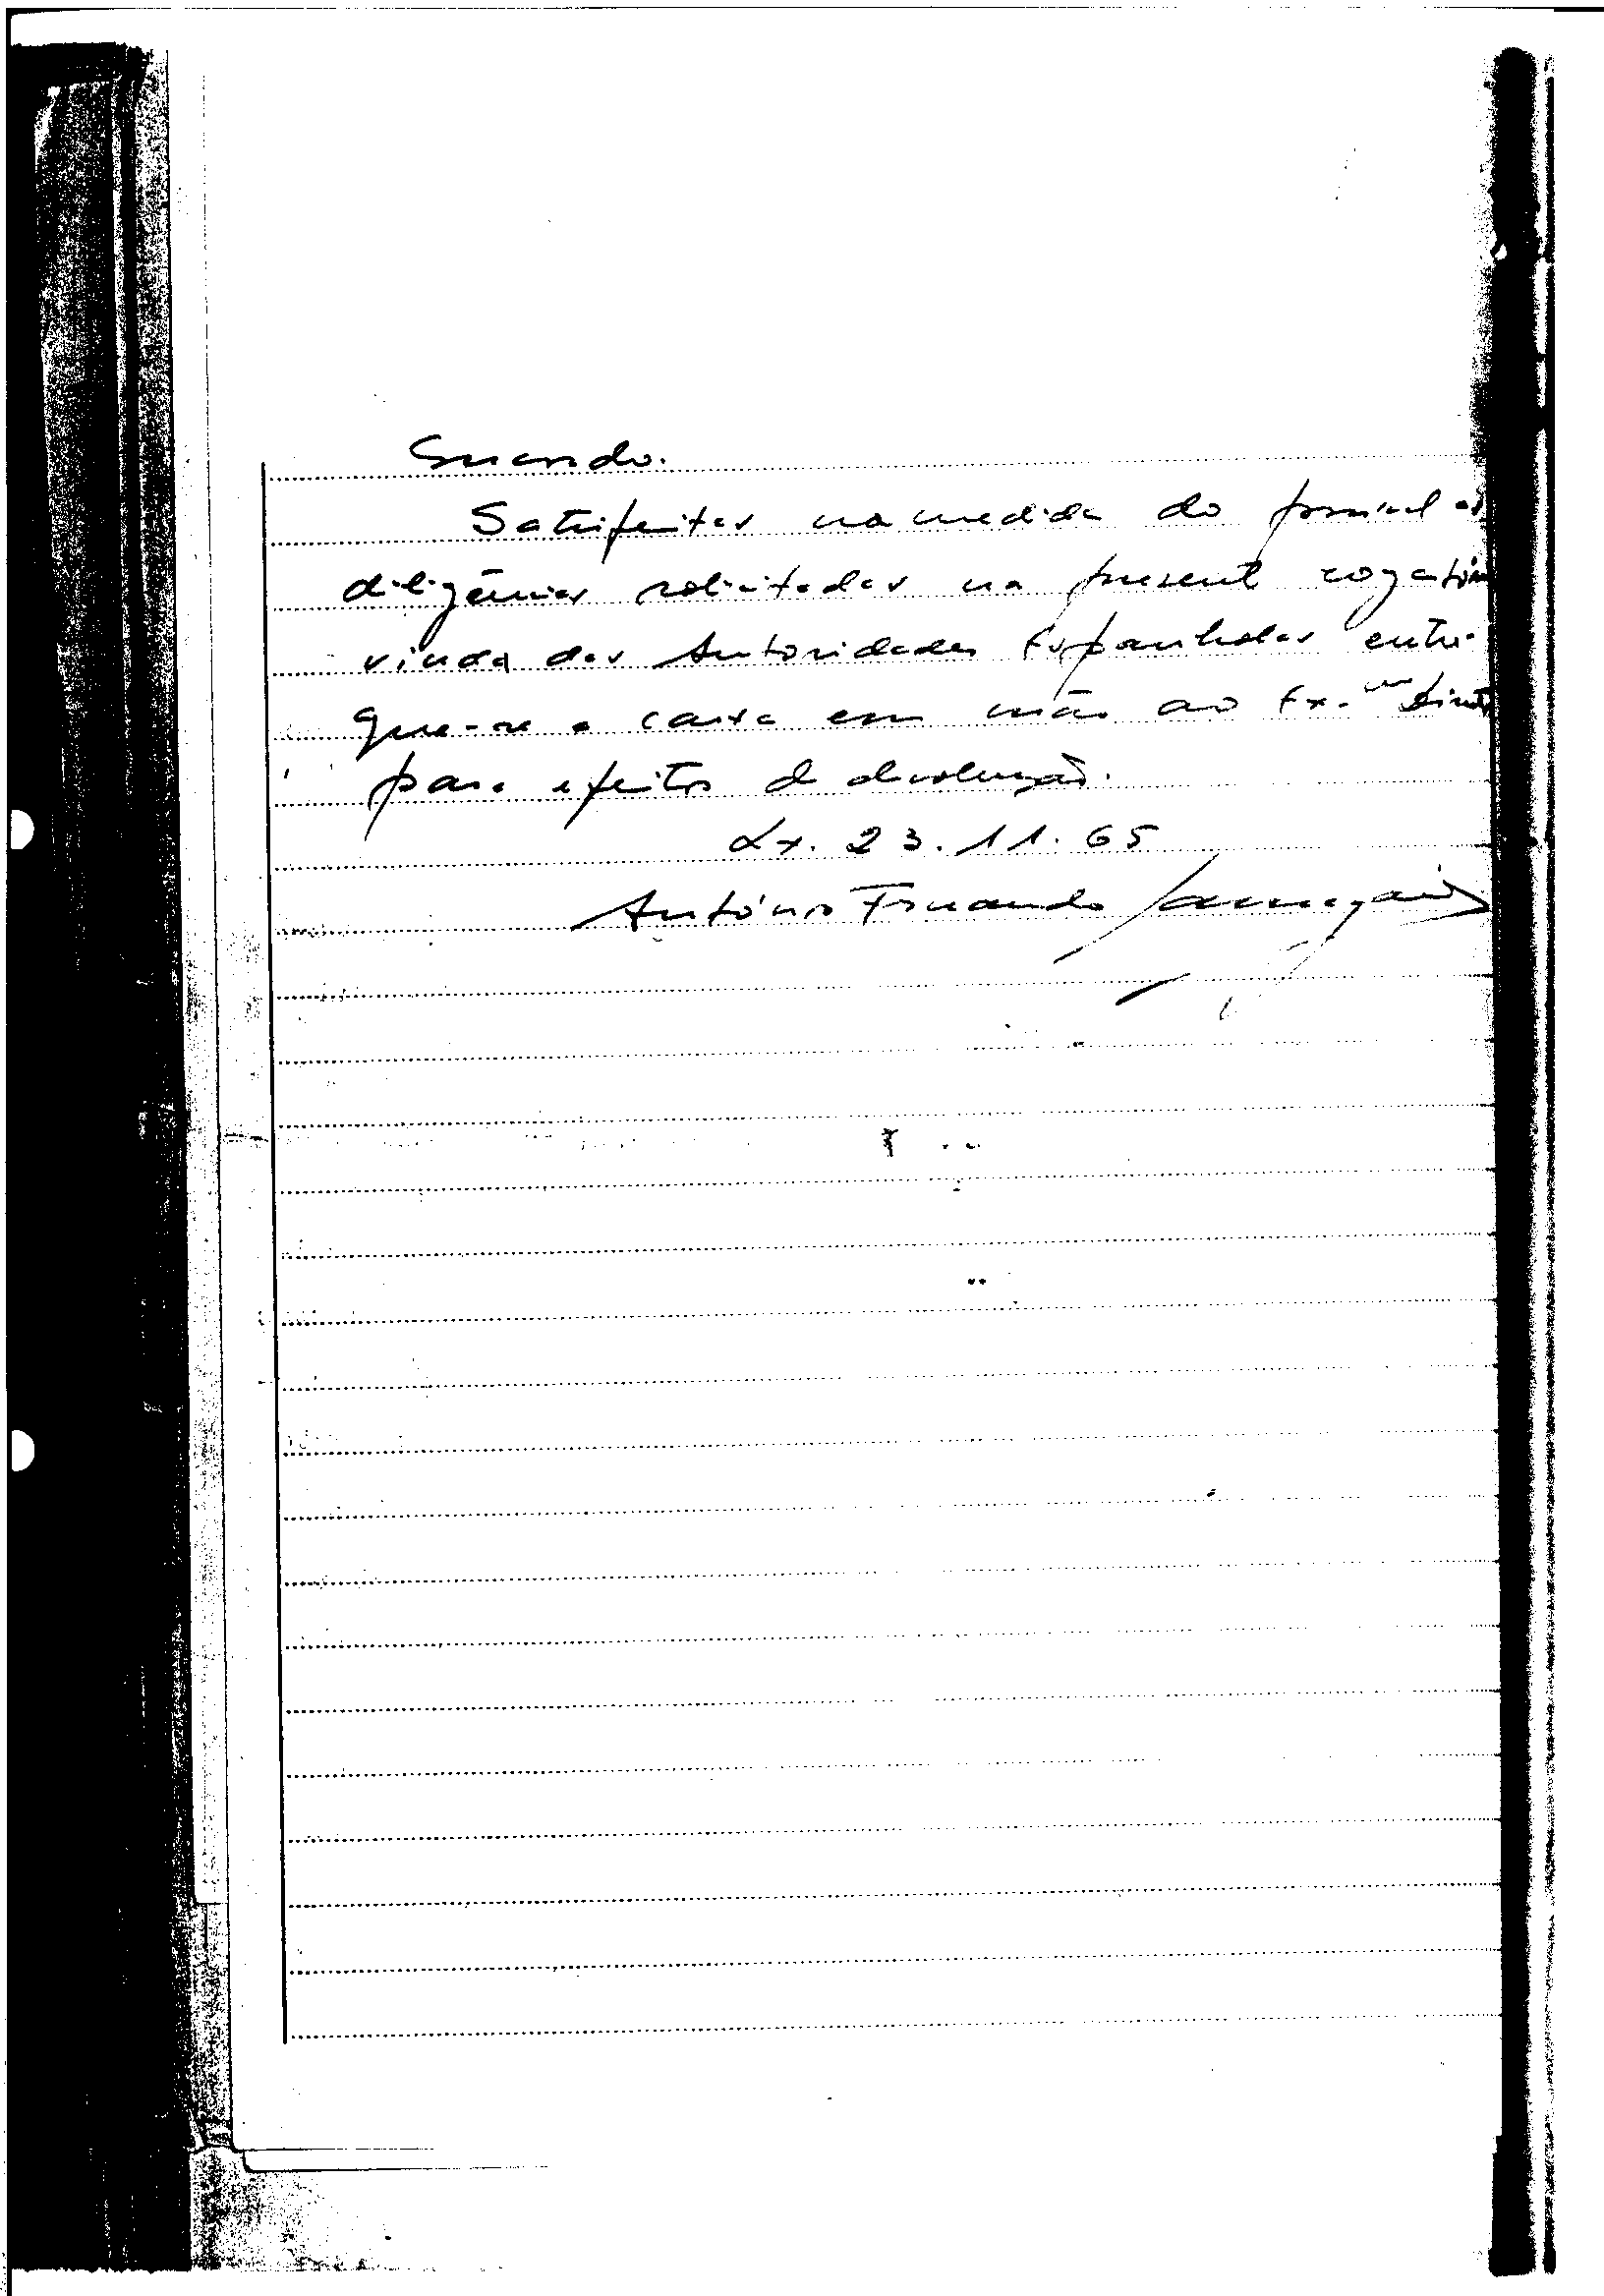 Satisfeitas na medida do possivel as
diligências solicitadas na presente rogatória
vinda das Autoridades Espanholas entre-
gue-se a carta em mão ao Ex.mo
para efeitos de devolução.
Lx. 23.11.65
António Fernando